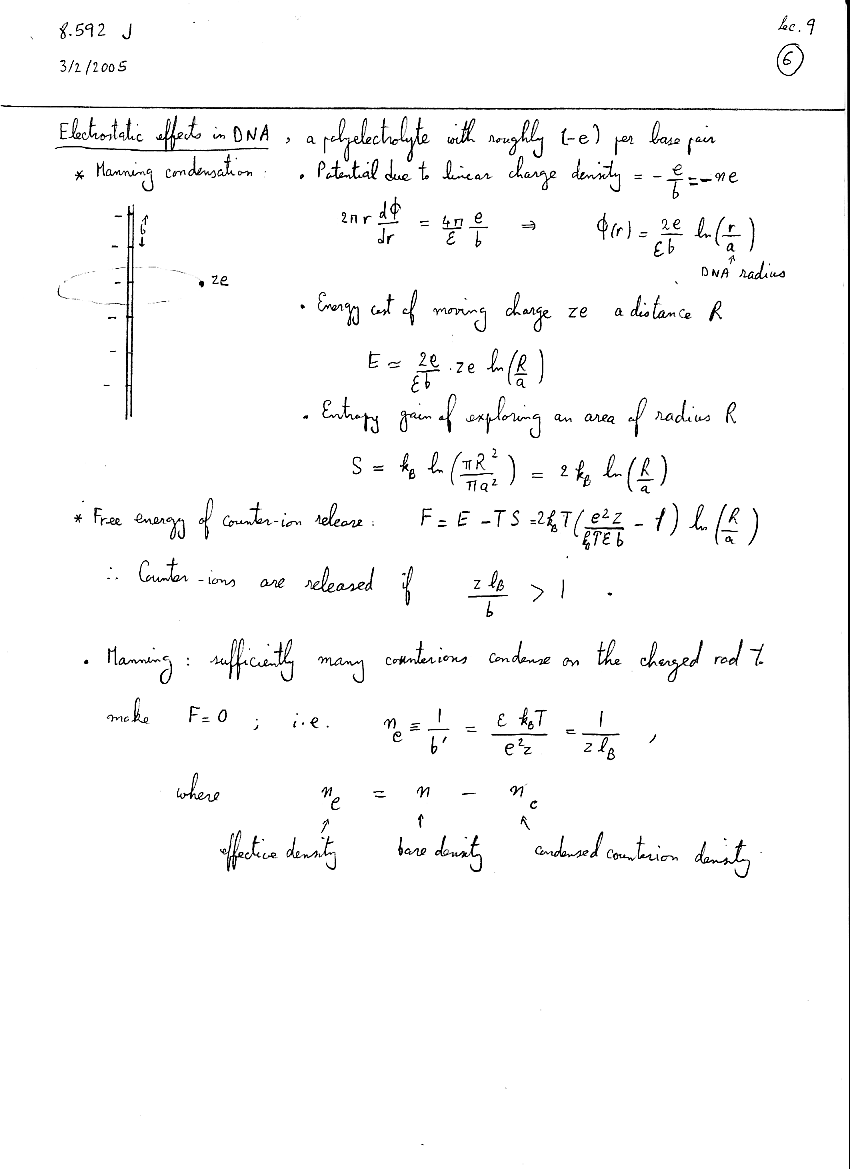 8.592 J
Lec. 9
3/2/2005
6
Electrostatic effects in DNA, a polyelectrolyte with roughly (-e) per base pair
* Manning condensation: • Potential due to linear charge density = - e/b = -ne
b
2πr dΦ/dr = 4π/ε e/b ⇒ Φ(r) = 2e/εb ln(r/a)
↑
DNA radius
ze
• Energy cost of moving charge ze a distance R
E = 2e/εb . ze ln(R/a)
• Entropy gain of exploring an area of radius R
S = k_B ln(πR²/πa²) = 2 k_B ln(R/a)
* Free energy of counter-ion release: F = E - TS = 2k_BT(e²z/k_BTεb - 1) ln(R/a)
∴ Counter-ions are released if z l_B/b > 1 .
• Manning: sufficiently many counterions condense on the charged rod to
make F=0 ; i.e. n_e ≡ 1/b' = ε k_BT/e²z = 1/z l_B ,
where n_e = n - n_c
↑ ↑ ↑
effective density bare density condensed counterion density